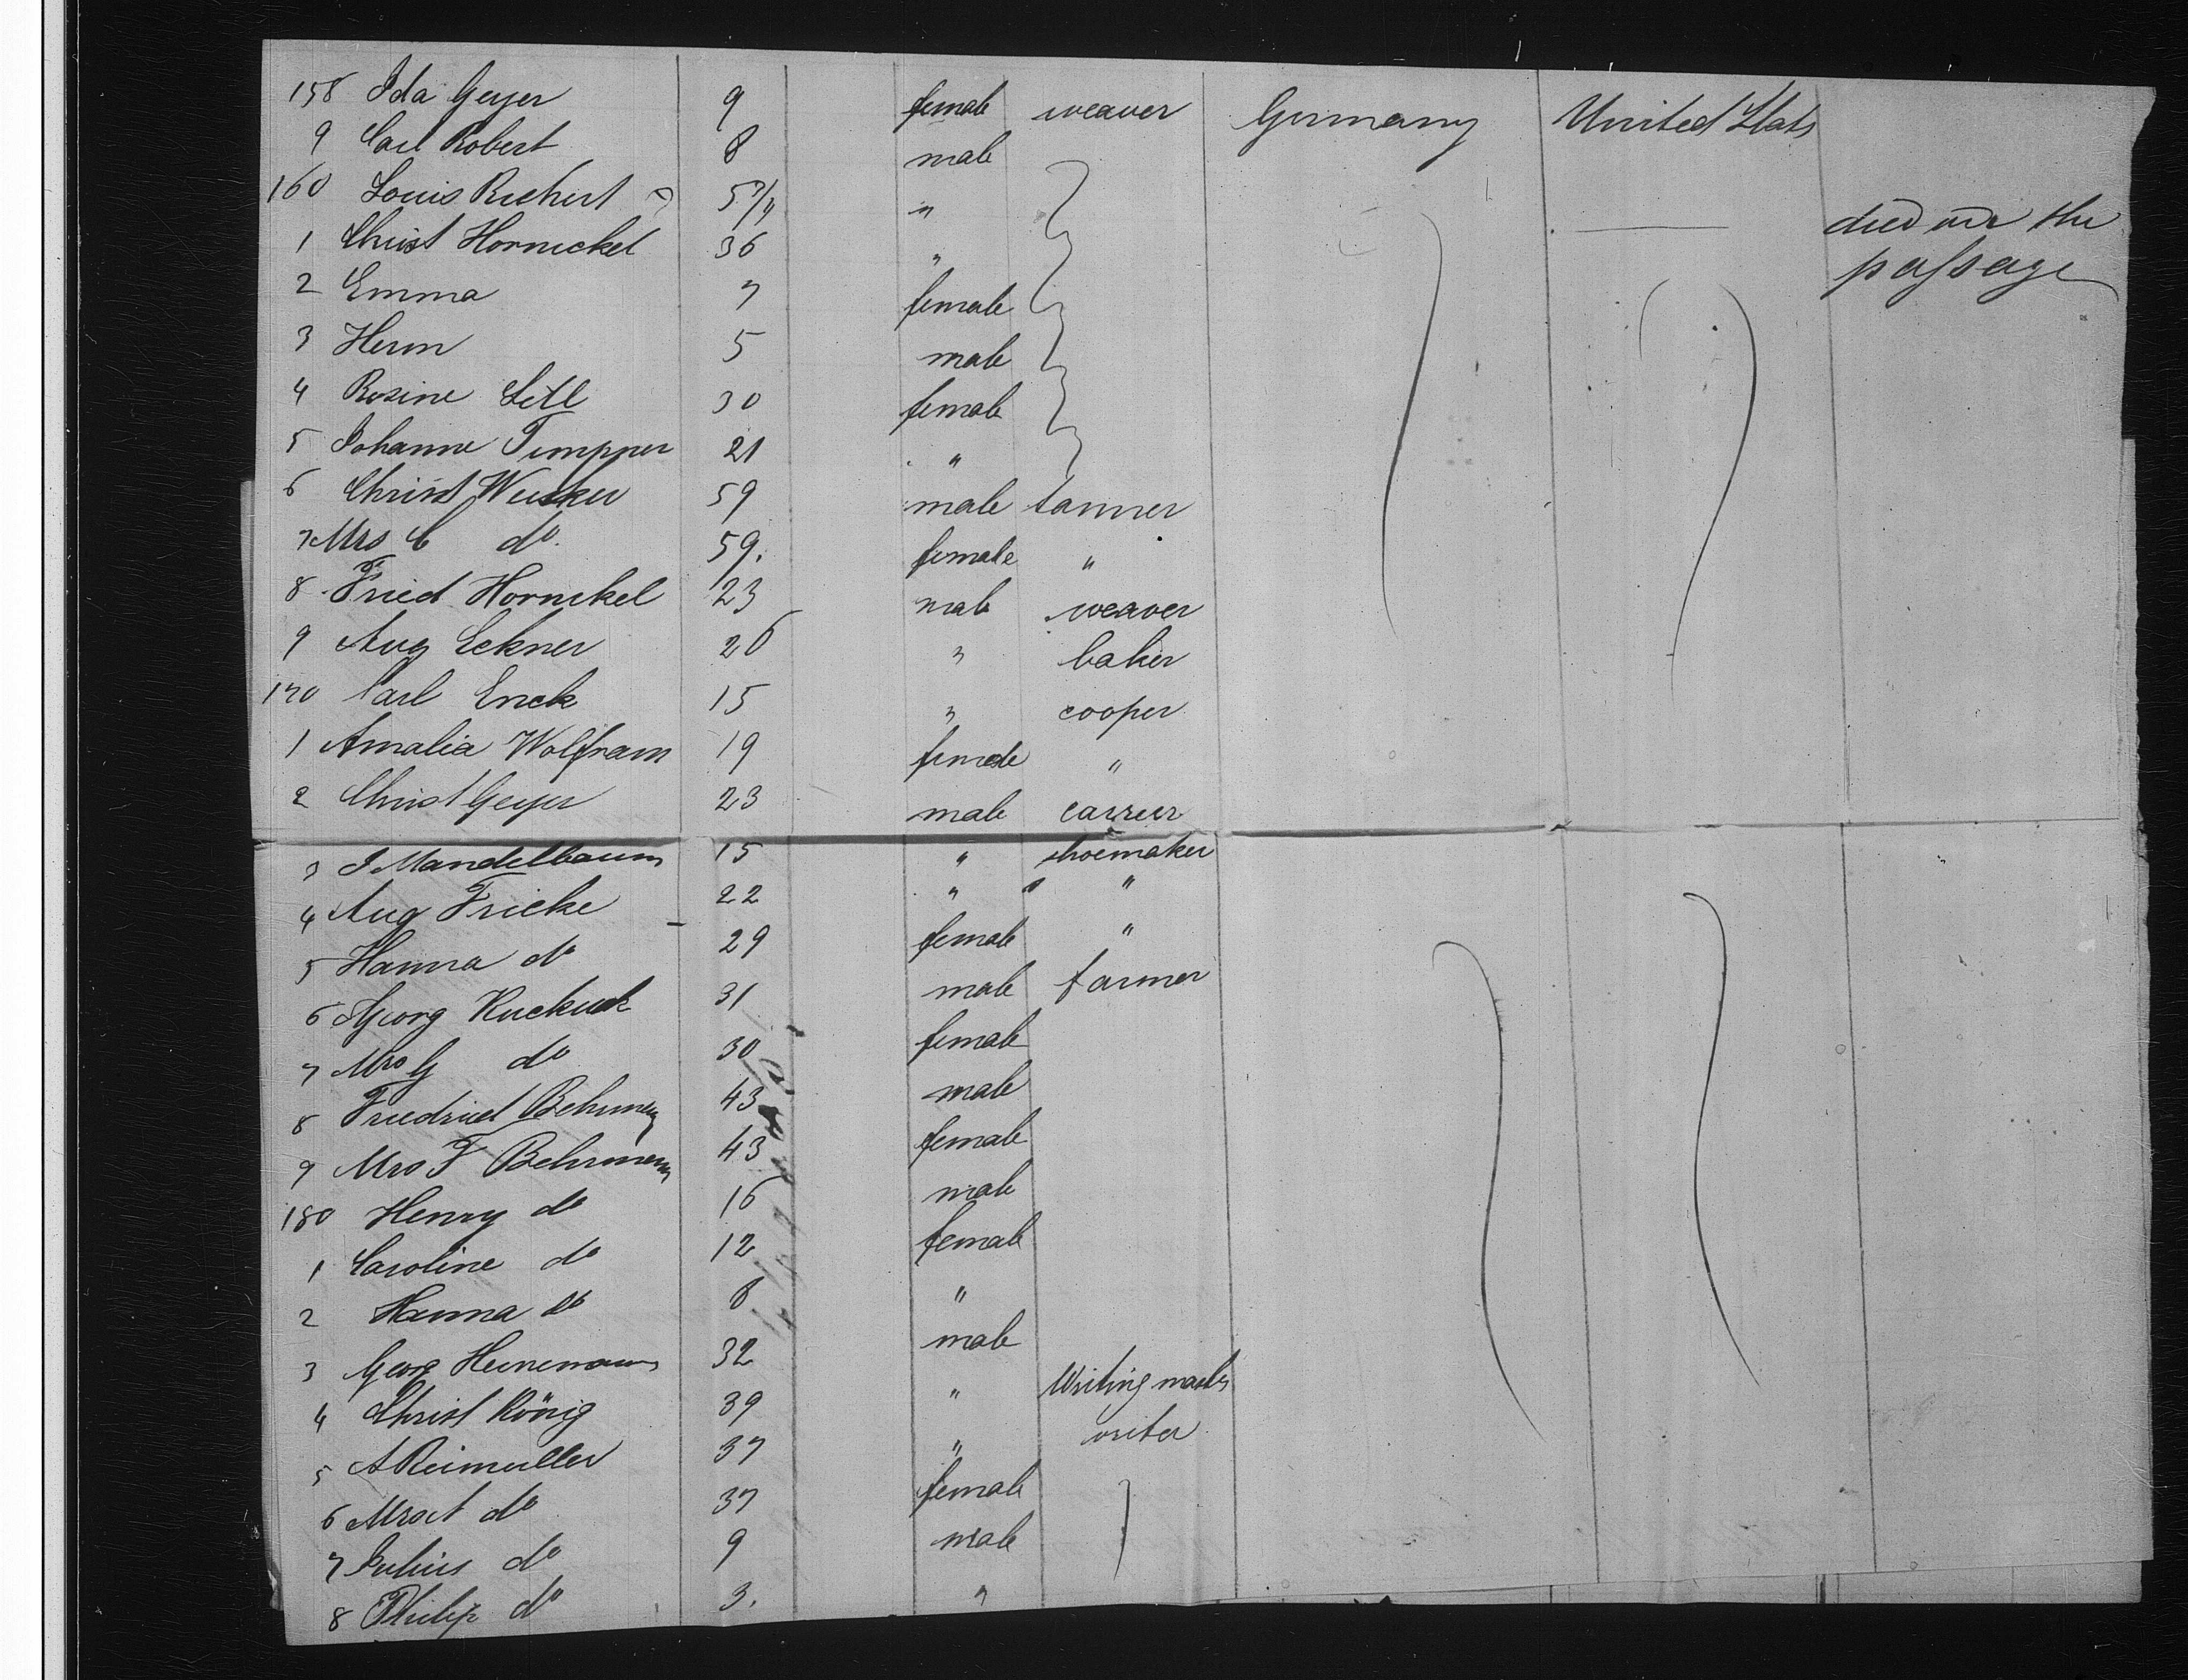 158 Ida Geyer 9 female weaver Germany United Stats
9 Carl Robert 8 male
160 Louis Richert 5 "
died on the
passage
1 Christ Hornickel 36 "
2 Emma 7 female
3 Herm 5 male
4 Rosine 30 female
5 Johanne Timpner 21 "
6 Christ 59 male tanner
7 Mrs C do. 59. female "
8 Fried Hornikel 23 male weaver
9 Aug Eckner 26 " baker
170 Carl Enck 15 " cooper
1 Amalia Wolfram 19 female "
2 Christ Geyer 23 male
3 J Mandelbaum 15 " shoemaker
4 Aug Fricke 22 " "
5 Hanna do 29 female "
6 Georg Kuckuck 31 male farmer
7 Mrs G do 30 female
8 Friedrich Behrmen 43 male
9 Mrs F Behrmenn 43 female
180 Henry do 16 male
1 Caroline do 12 female
2 Hanna do 8 "
3 Georg Heinemann 32 male
4 Christ König 39 " Writing master
5 A Reimuller 37 " writer
6 Mrs A do 37 female
7 Julius do 9 male
8 Philip do 3. "